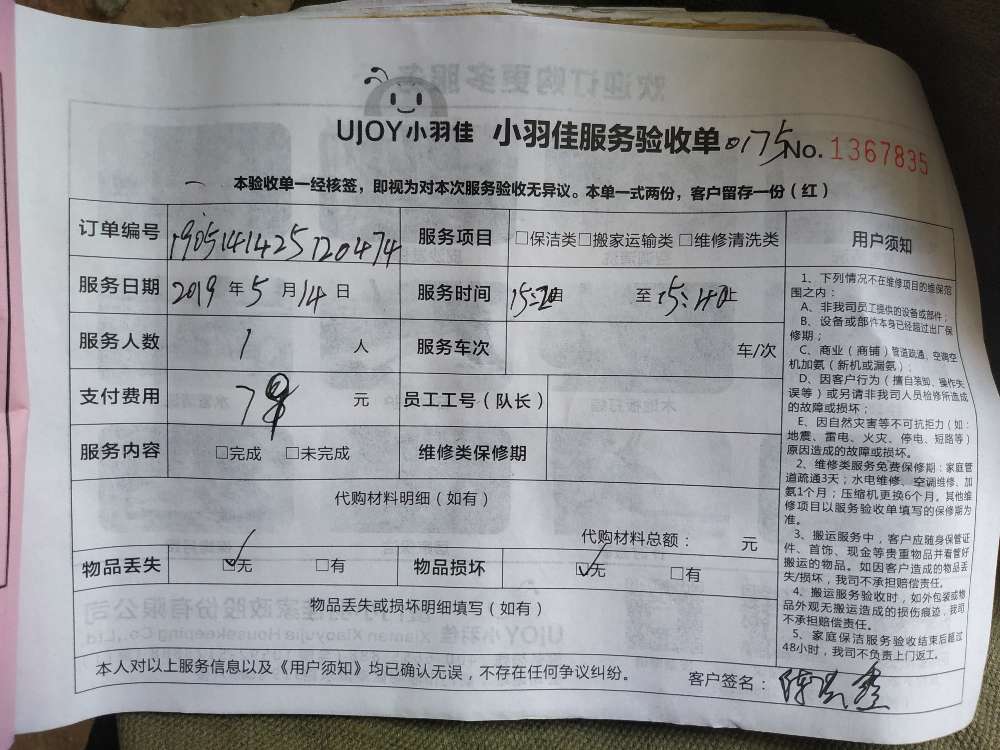 UJOY小羽佳 小羽佳服务验收单 0175 No. 1367835
本验收单一经核签，即视为对本次服务验收无异议。本单一式两份，客户留存一份（红）
订单编号 1905141425120474 服务项目 □保洁类□搬家运输类 □维修清洗类
服务日期 2019 年 5 月 14 日 服务时间 15:20 至 15:40
服务人数 1 人 服务车次 车/次
支付费用 元 员工工号（队长）
服务内容 □完成 □未完成 维修类保修期
代购材料明细（如有）
代购材料总额： 元
物品丢失 ☑无 □有 物品损坏 ☑无 □有
物品丢失或损坏明细填写（如有）
本人对以上服务信息以及《用户须知》均已确认无误，不存在任何争议纠纷。 客户签名：
用户须知
1、下列情况不在维修项目的维保范
围之内：
A、非我司员工提供的设备或部件；
B、设备或部件本身已经超过出厂保
修期；
C、商业（商铺）管道疏通、空调空
机加氨（新机或漏氨）；
D、因客户行为（擅自装卸、操作失
误等）或另请非我司人员检修所造成
的故障或损坏；
E、因自然灾害等不可抗拒力（如：
地震、雷电、火灾、停电、短路等）
原因造成的故障或损坏。
2、维修类服务免费保修期：家庭管
道疏通3天；水电维修、空调维修、加
氨1个月；压缩机更换6个月。其他维
修项目以服务验收单填写的保修期为
准。
3、搬运服务中，客户应随身保管证
件、首饰、现金等贵重物品并看管好
搬运的物品。如因客户造成的物品丢
失/损坏，我司不承担赔偿责任。
4、搬运服务验收时，如外包装或物
品外观无搬运造成的损伤痕迹，我司
不承担赔偿责任。
5、家庭保洁服务验收结束后超过
48小时，我司不负责上门返工。